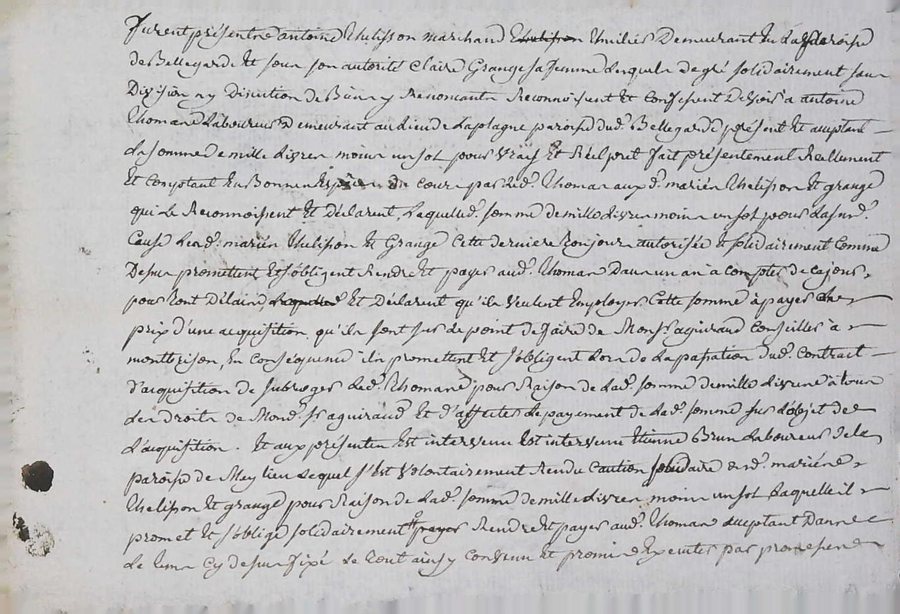 Furent présents antoine Thelisson marchand Thelisson Émilies Demeurant En La paroisse
de Bellegarde Et sous son autorité Claire Grange sa femme Lesquels de gré solidairement sans
Division ny Discution de Biens y Renoncants Reconnoissent Et Confessent Devoir à antoine
Thomand Laboureur Demeurant au lieu de Laplagne paroisse dud. Bellegarde présent Et acceptant
La somme de mille Livres moins un sol pour vray Et Réel pret fait présentement Reellement
Et Comptant En Bonnes Espèces du Cours par led. Thoman aux d. mariés Thelisson Et grange
qui Le Reconnoissent Et Déclarent, Laquelle d. somme de mille Livres moins un sol pour La susd.
Cause Les d. mariés Thelisson Et Grange Cette derniere Toujours autorisée Et solidairement Comme
Dessus promettent Et s'obligent Rendre Et payer aud. Thoman Dans un an a compter de ce jour,
pour tout Délaid, Laquelle Et Déclarent qu'ils veulent Employer Cette somme à payer Le
prix d'une acquisition qu'ils sont sur Le point de faire de Monsr. aguiraud Conseiller à
montbrison, En Conséquence ils promettent Et s'obligent Lors de La passation dud. Contract
d'acquisition de subroger Led. Thomand pour Raison de Lad. somme de mille Livres à tous
Les droits de Mond. Sr. aguiraud Et d'affecter Le payement de Lad. somme sur L'objet de
L'acquisition. Et aux présentes Est intervenu Est intervenu Etienne Brun Laboureur de la
paroisse de Meylieu Lequel s'Est volontairement Rendu Caution solidaire desd. mariés
Thelisson Et grange pour Raison de Lad. somme de mille Livres moins un sol Laquelle il
promet Et s'oblige solidairement payer Rendre Et payer aud. Thoman acceptant Dans
Le terme Cy dessus fixé Le tout ainsy Convenu Et promis Executer par